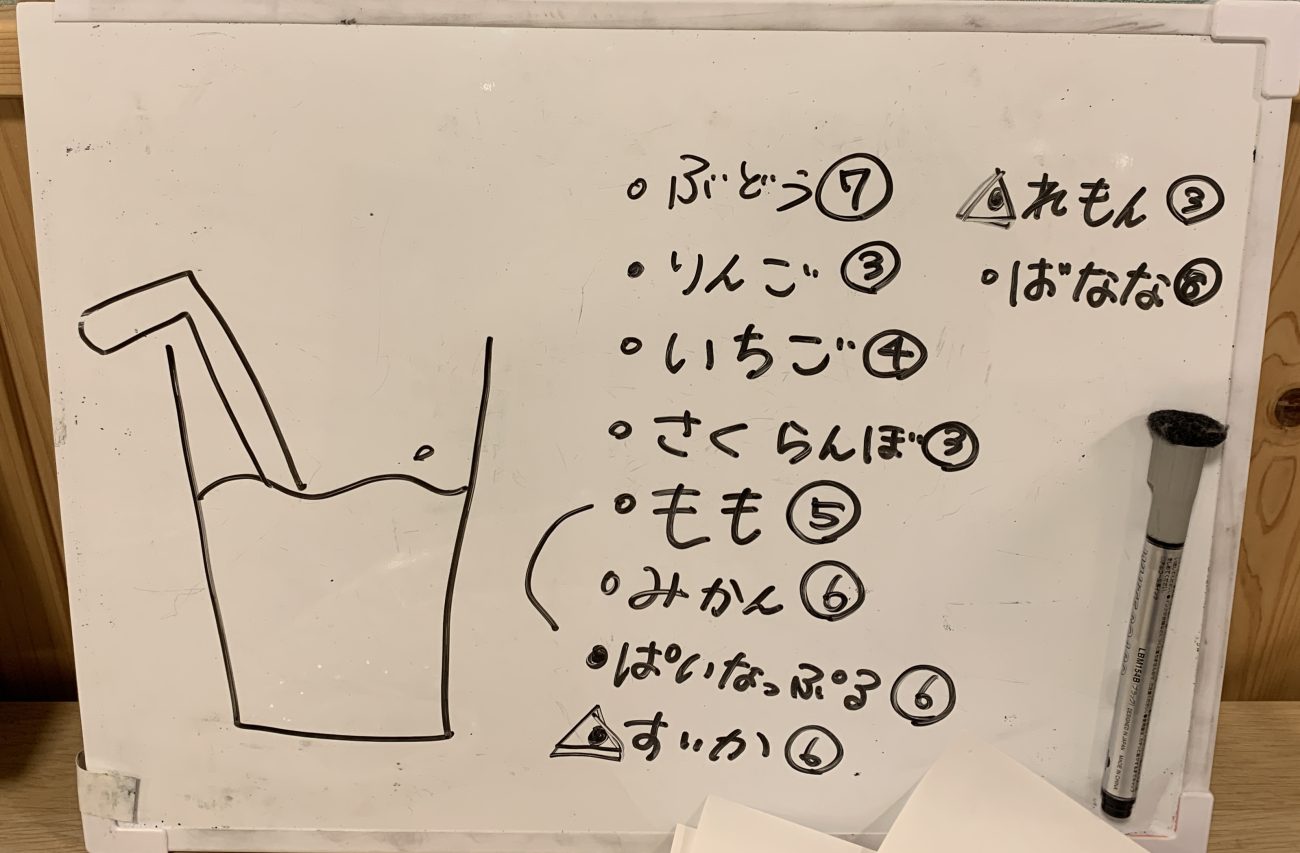 ぶどう⑦
りんご③
いちご④
さくらんぼ③
もも⑤
みかん⑥
ぱいなっぷる⑥
すいか⑥
れもん③
ばなな
LBM154B ブラック